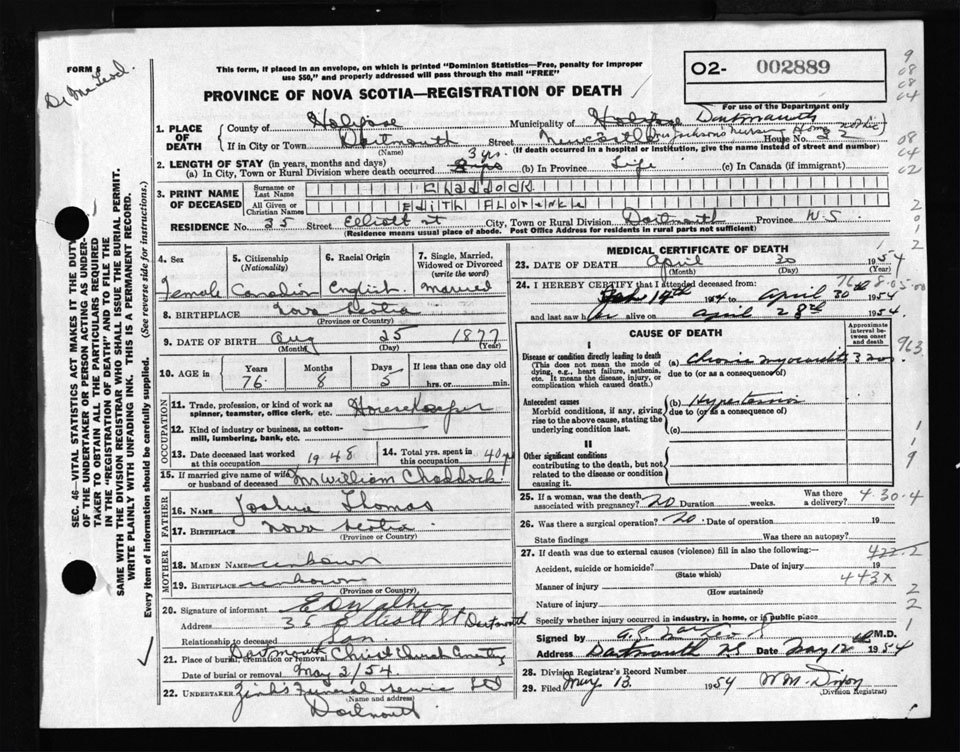 FORM 6
This form, if placed in an envelope, on which is printed "Dominion Statistics—Free, penalty for improper
use $50," and properly addressed will pass through the mail "FREE"
PROVINCE OF NOVA SCOTIA—REGISTRATION OF DEATH
O2- 002889
For use of the Department only
1. PLACE OF DEATH
County of Halifax Municipality of Halifax Dartmouth
If in City or Town Dartmouth Street Nursing Home House No. 2
(Name) (If death occurred in a hospital or institution, give the name instead of street and number)
2. LENGTH OF STAY (in years, months and days)
(a) In City, Town or Rural Division where death occurred 3 yrs. (b) In Province Life (c) In Canada (if immigrant)
3. PRINT NAME OF DECEASED
Surname or Last Name Chaddock
All Given or Christian Names EDITH FLORENCE
RESIDENCE No. 35 Street Elliott St City, Town or Rural Division Dartmouth Province N.S.
(Residence means usual place of abode. Post Office Address for residents in rural parts not sufficient)
4. Sex Female
5. Citizenship (Nationality) Canadian
6. Racial Origin English
7. Single, Married, Widowed or Divorced (write the word) Married
8. BIRTHPLACE Nova Scotia
(Province or Country)
9. DATE OF BIRTH Aug 25 1877
(Month) (Day) (Year)
10. AGE Years 76 Months 8 Days 5 If less than one day old
hrs. or min.
OCCUPATION
11. Trade, profession, or kind of work as spinner, teamster, office clerk, etc. Housekeeper
12. Kind of industry or business, as cotton-mill, lumbering, bank, etc.
13. Date deceased last worked at this occupation 1948
14. Total yrs. spent in this occupation 40 yrs
15. If married give name of wife or husband of deceased Mr William Chaddock
FATHER
16. NAME Joshua Thomas
17. BIRTHPLACE Nova Scotia
(Province or Country)
MOTHER
18. MAIDEN NAME unknown
19. BIRTHPLACE unknown
(Province or Country)
20. Signature of informant
Address 35 Elliott St Dartmouth
Relationship to deceased
21. Place of burial, cremation or removal Dartmouth Christ Church Cemetery
Date of burial or removal May 3/54
22. UNDERTAKER Zink's Funeral Service Ltd
(Name and address)
Dartmouth
MEDICAL CERTIFICATE OF DEATH
23. DATE OF DEATH April 30 1954
(Month) (Day) (Year)
24. I HEREBY CERTIFY that I attended deceased from:
14th 1954 to April 30th 1954
and last saw her alive on April 28th 1954.
CAUSE OF DEATH
Approximate interval between onset and death
I
Disease or condition directly leading to death
(This does not mean the mode of dying, e.g., heart failure, asthenia, etc. It means the disease, injury, or complication which caused death.)
(a) Chronic myocarditis
due to (or as a consequence of)
Antecedent causes
Morbid conditions, if any, giving rise to the above cause, stating the underlying condition last.
(b) Hypertension
due to (or as a consequence of)
(c)
II
Other significant conditions
contributing to the death, but not related to the disease or condition causing it.
25. If a woman, was the death associated with pregnancy? No Duration weeks. Was there a delivery?
4.30.4
26. Was there a surgical operation? No. Date of operation 19
State findings Was there an autopsy?
27. If death was due to external causes (violence) fill in also the following:—
422.2
Accident, suicide or homicide? Date of injury 19
(State which)
443X
Manner of injury
(How sustained)
Nature of injury
Specify whether injury occurred in industry, in home, or in public place
Signed by M.D.
Address Dartmouth NS Date May 12th 1954
28. Division Registrar's Record Number
29. Filed May 13 1954 W M. Dixon
(Division Registrar)
SEC. 46—VITAL STATISTICS ACT MAKES IT THE DUTY
OF THE UNDERTAKER OR PERSON ACTING AS UNDER-
TAKER TO OBTAIN ALL THE PARTICULARS REQUIRED
IN THE "REGISTRATION OF DEATH" AND TO FILE THE
SAME WITH THE DIVISION REGISTRAR WHO SHALL ISSUE THE BURIAL PERMIT.
WRITE PLAINLY WITH UNFADING INK. THIS IS A PERMANENT RECORD.
Every item of information should be carefully supplied. (See reverse side for instructions.)